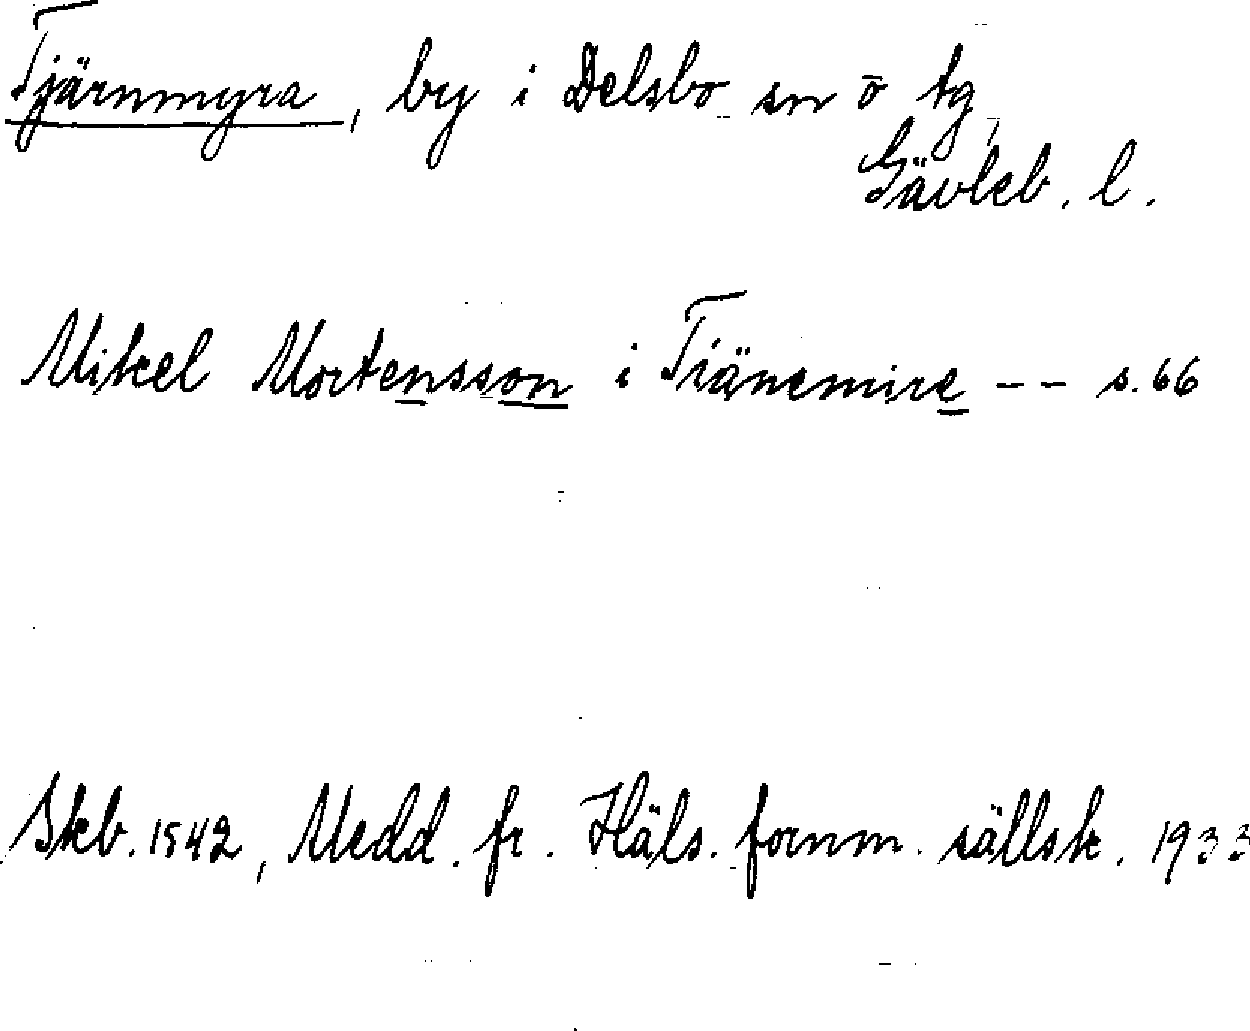 Tjärnmyra, by i Delsbo sn ō tg,
Gävleb. l.
Mikel Mortensson i Tiänemire -- s. 66
Skb. 1542, Medd. fr. Häls. fornm. sällsk. 1933